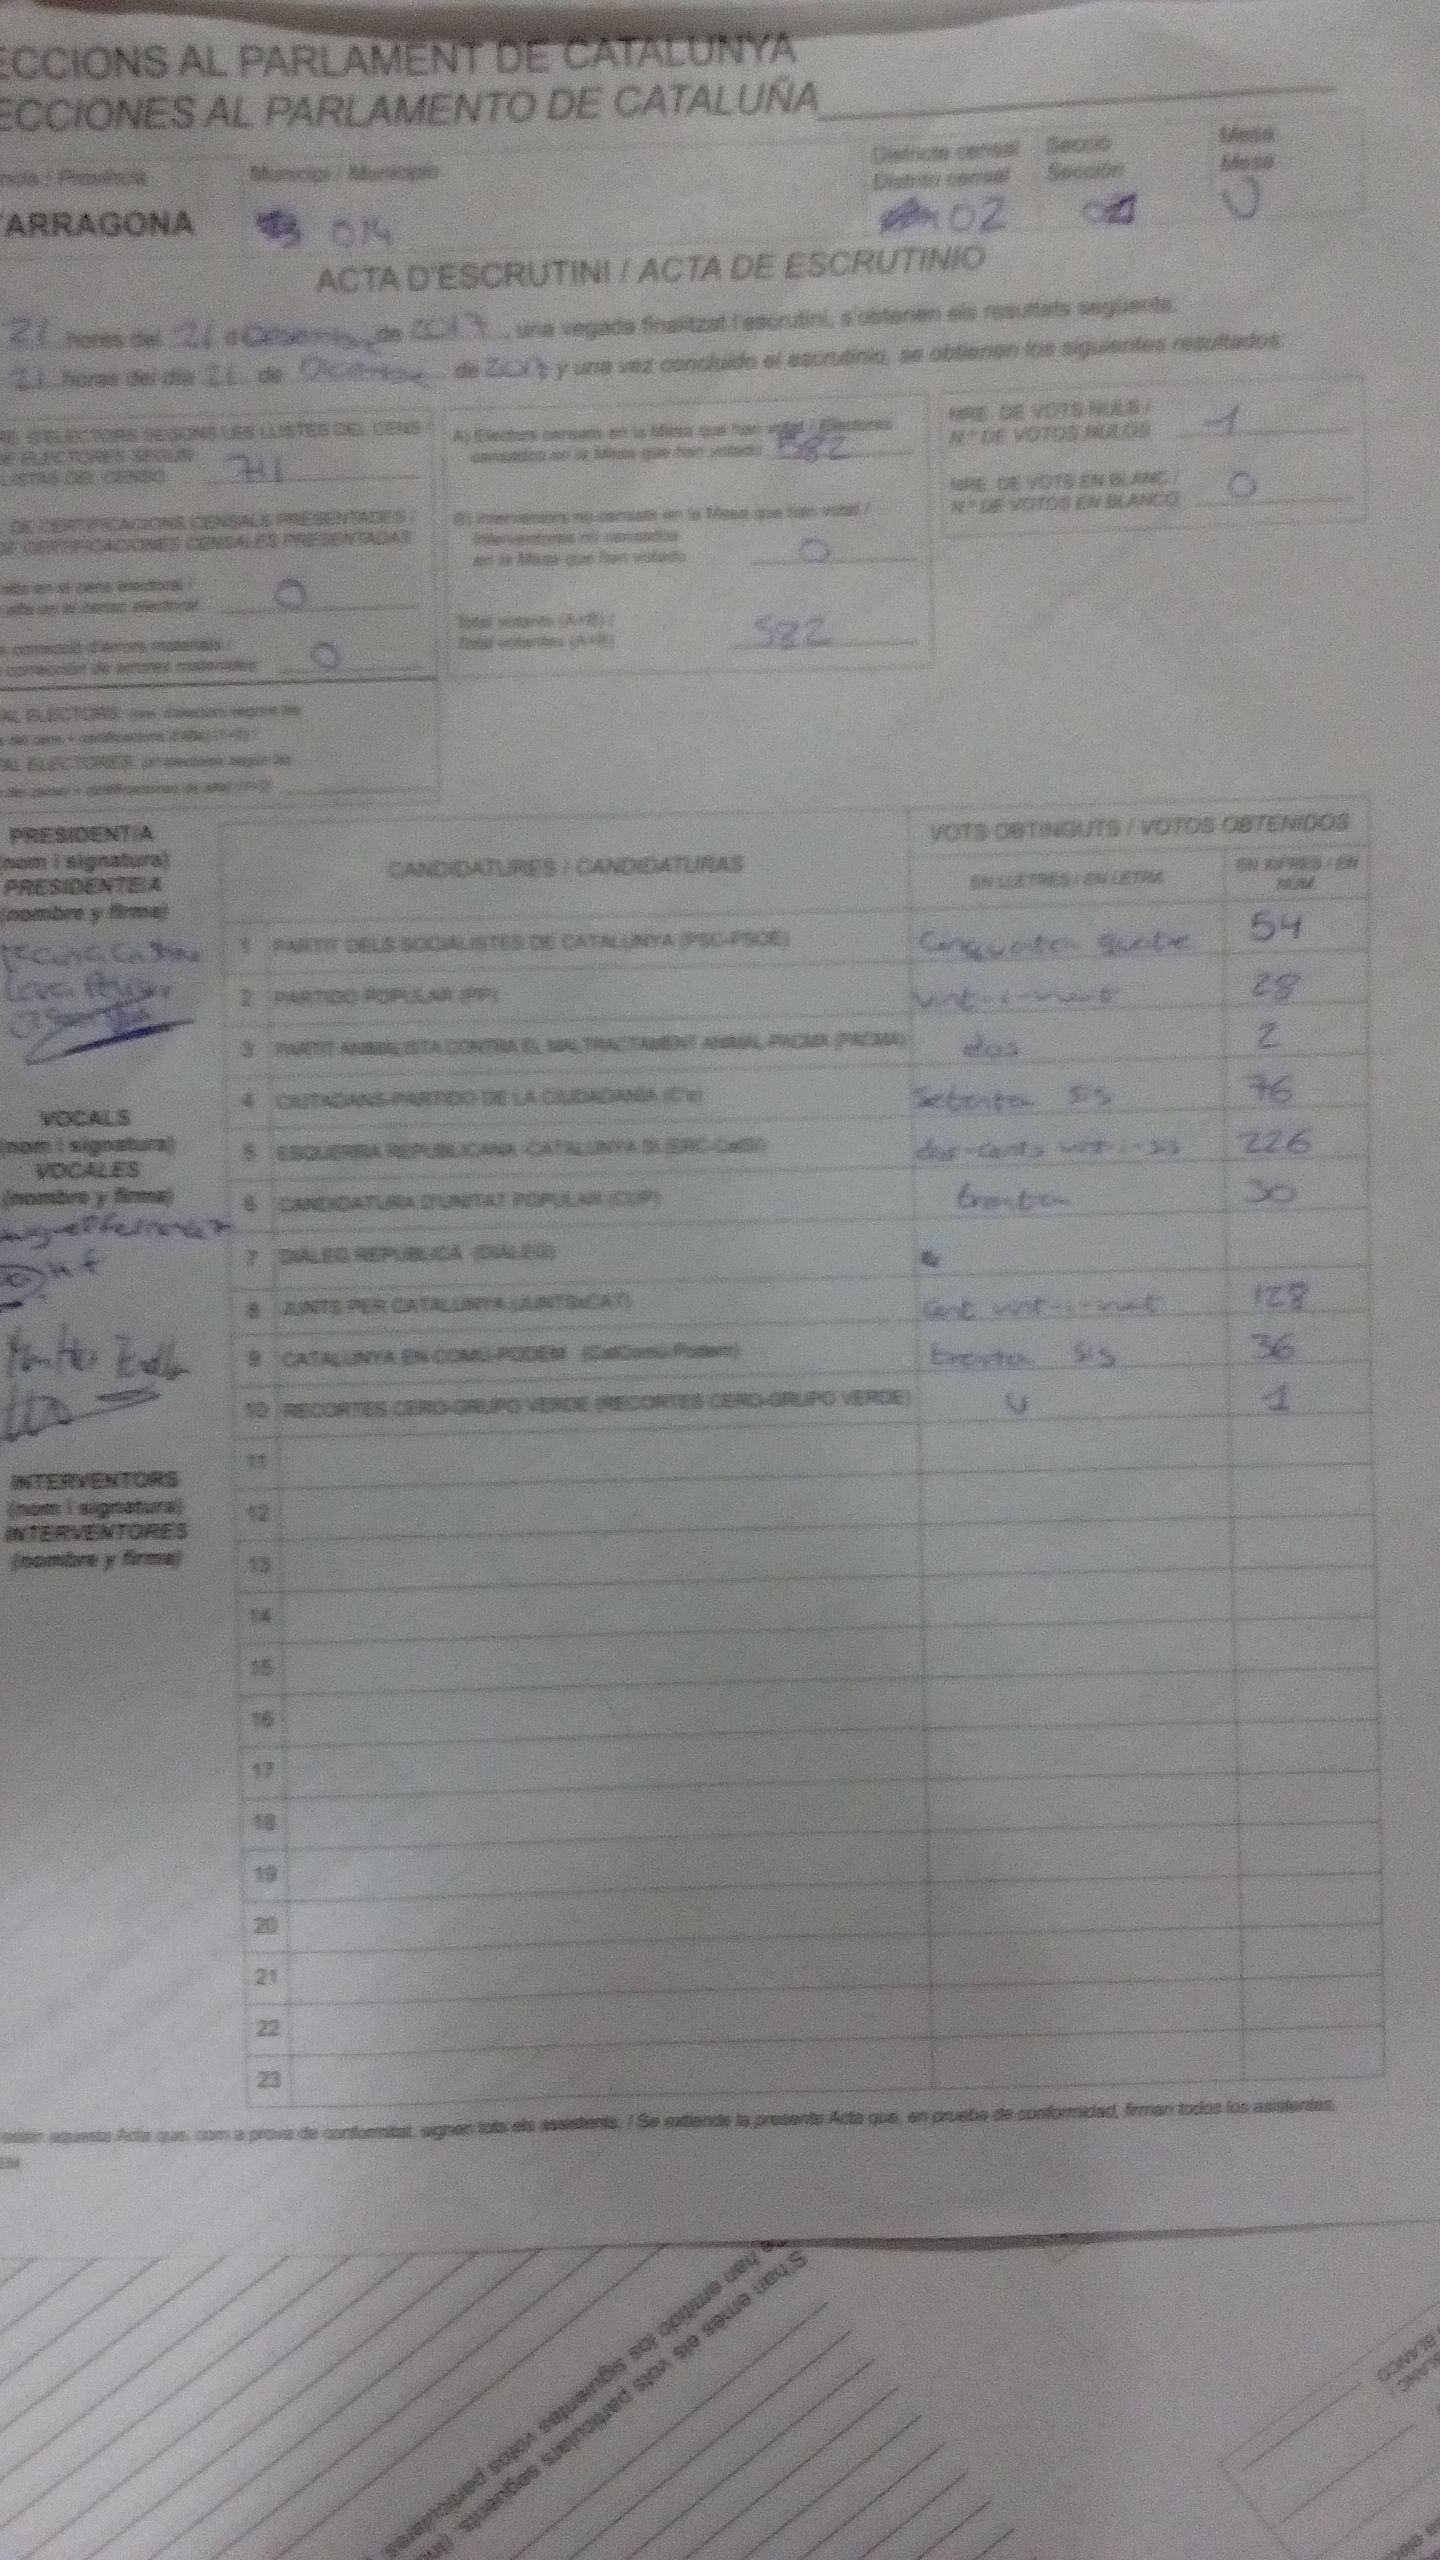 ECCIONS AL PARLAMENT DE CATALUNYA
ECCIONES AL PARLAMENTO DE CATALUÑA
ncia / Provincia Municipi / Municipio Districte censal Secció Mesa
Distrito censal Sección Mesa
TARRAGONA 014 02 U
ACTA D'ESCRUTINI / ACTA DE ESCRUTINIO
21 hores del 21 d de 2017, una vegada finalitzat l'escrutini, s'obtenen els resultats següents:
21 horas del día 21 de Diciembre de 2017 y una vez concluido el escrutinio, se obtienen los siguientes resultados:
RE. D'ELECTORS SEGONS LES LLISTES DEL CENS /
DE ELECTORES SEGÚN
LISTAS DEL CENSO 741
DE CERTIFICACIONS CENSALS PRESENTADES /
DE CERTIFICACIONES CENSALES PRESENTADAS
alta en el cens electoral /
alta en el censo electoral 0
correcció d'errors materials /
corrección de errores materiales 0
AL ELECTORS: (nre. d'electors segons les
del cens + certificacions d'alta) (1+2) /
AL ELECTORES: (nº electores según las
del censo + certificaciones de alta) (1+2)
A) Electors censats en la Mesa que han votat / Electores
censados en la Mesa que han votado 582
B) Interventors no censats en la Mesa que han votat /
Interventores no censados
en la Mesa que han votado 0
Total votants (A+B) /
Total votantes (A+B) 582
NRE. DE VOTS NULS /
N.º DE VOTOS NULOS 1
NRE. DE VOTS EN BLANC /
N.º DE VOTOS EN BLANCO 0
PRESIDENT/A
(nom i signatura)
PRESIDENTE/A
(nombre y firma)
VOCALS
(nom i signatura)
VOCALES
(nombre y firma)
INTERVENTORS
(nom i signatura)
INTERVENTORES
(nombre y firma)
CANDIDATURES / CANDIDATURAS VOTS OBTINGUTS / VOTOS OBTENIDOS
EN LLETRES / EN LETRA EN XIFRES / EN NÚM.
1 PARTIT DELS SOCIALISTES DE CATALUNYA (PSC-PSOE) Cinquanta quatre 54
2 PARTIDO POPULAR (PP) vint-i-vuit 28
3 PARTIT ANIMALISTA CONTRA EL MALTRACTAMENT ANIMAL-PACMA (PACMA) dos 2
4 CIUTADANS-PARTIDO DE LA CIUDADANÍA (C's) Setenta sis 76
5 ESQUERRA REPUBLICANA -CATALUNYA SÍ (ERC-CatSÍ) dos-cents vint-i-sis 226
6 CANDIDATURA D'UNITAT POPULAR (CUP) trenta 30
7 DIÀLEG REPUBLICÀ (DIÀLEG)
8 JUNTS PER CATALUNYA (JUNTSxCAT) cent vint-i-vuit 128
9 CATALUNYA EN COMÚ-PODEM (CatComú-Podem) trenta sis 36
10 RECORTES CERO-GRUPO VERDE (RECORTES CERO-GRUPO VERDE) U 1
11
12
13
14
15
16
17
18
19
20
21
22
23
aquesta Acta que, com a prova de conformitat, signen tots els assistents. / Se extiende la presente Acta que, en prueba de conformidad, firman todos los asistentes.
S'han emès els vots particulars següents
han emitido los siguientes votos particulares